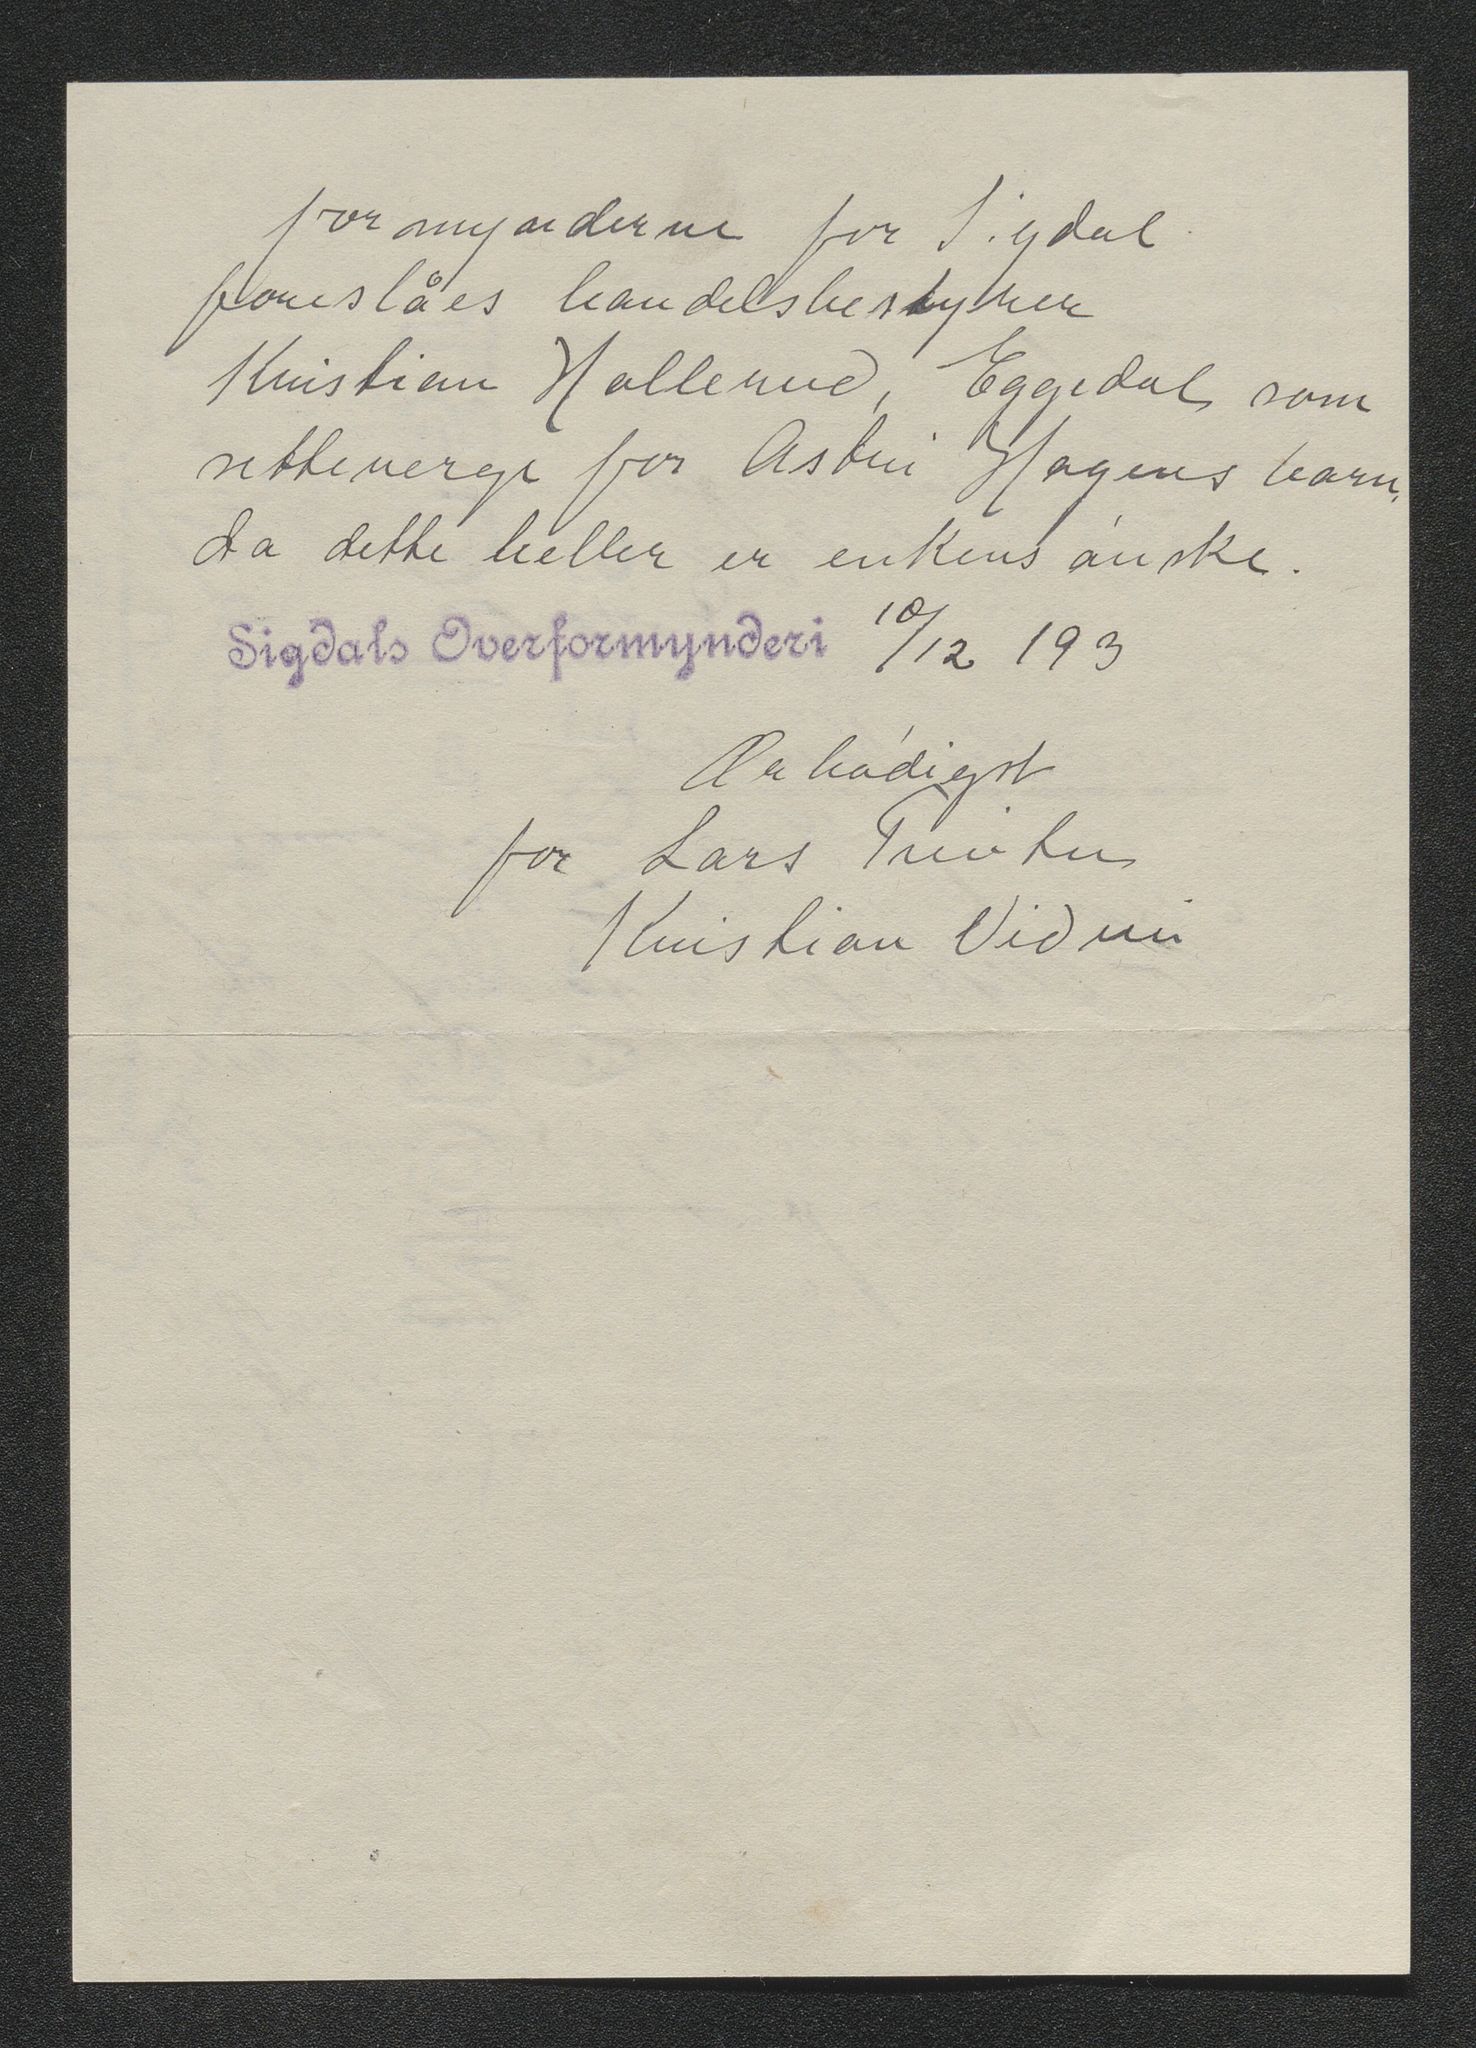 formynderne for Sigdal
foreslåes handelsbestyrer
Kristian Hollerud, Eggedal som
setteverge for Astri Hagens barn,
da dette heller er enkens ønske.
Sigdals Overformynderi 10/12 193
Ærbødigst
for Lars
Kristian